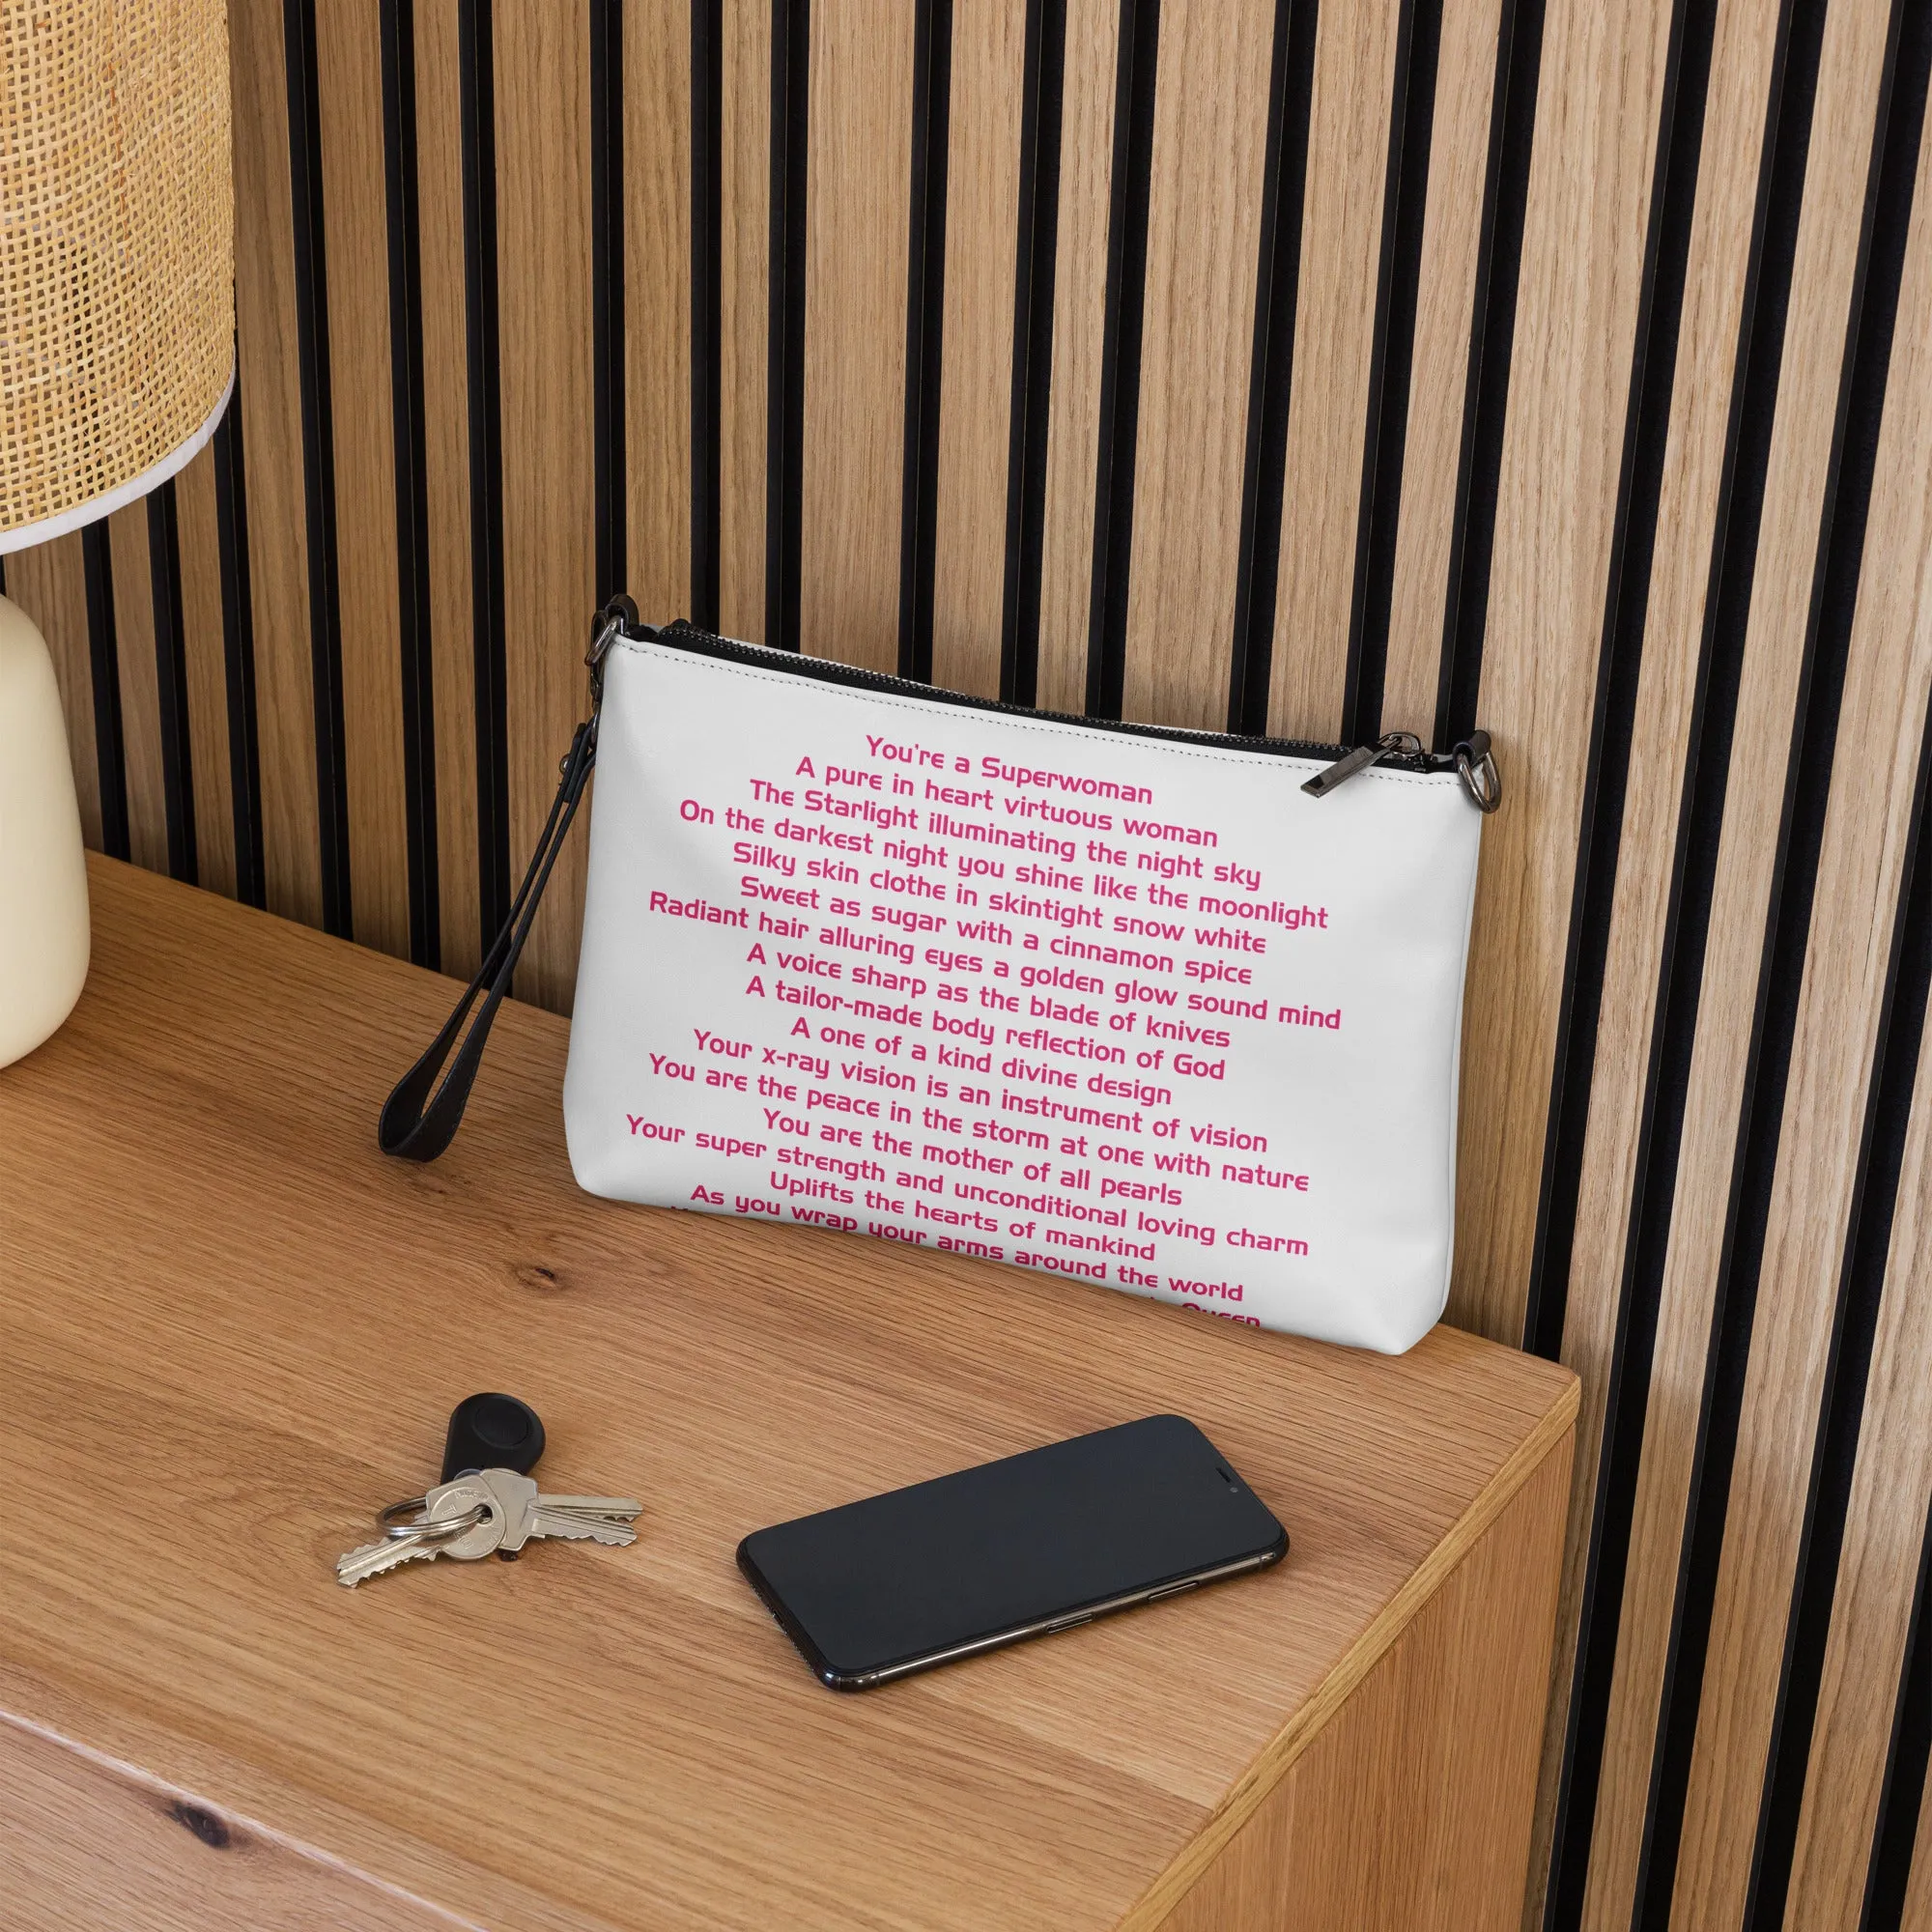 You're a Superwoman
A pure in heart virtuous woman
The Starlight illuminating the night sky
On the darkest night you shine like the moonlight
Silky skin clothe in skintight snow white
Sweet as sugar with a cinnamon spice
Radiant hair alluring eyes a golden glow sound mind
A voice sharp as the blade of knives
A tailor-made body reflection of God
A one of a kind divine design
Your x-ray vision is an instrument of vision
You are the peace in the storm at one with nature
You are the mother of all pearls
Your super strength and unconditional loving charm
Uplifts the hearts of mankind
As you wrap your arms around the world
Queen